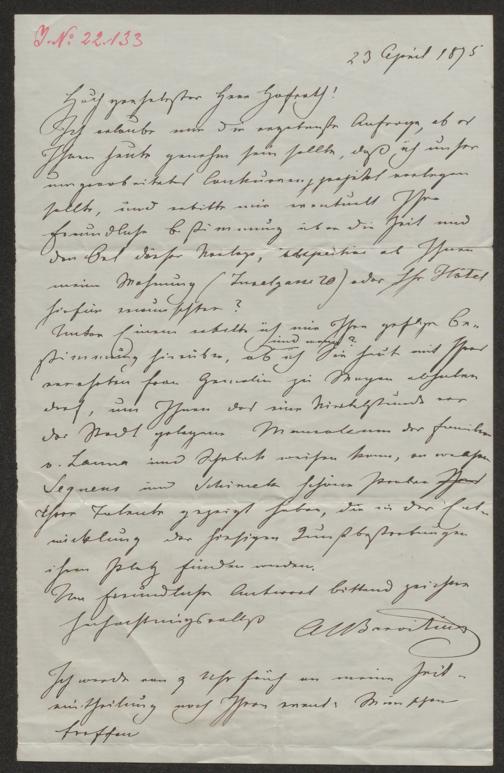 J. No 22.133
23 April 1875
Hochgeehrtester Herr Hofrath!
Ich erlaube mir die ergebenste Anfrage, ob es
Ihnen heute genehm sein sollte, daß ich unser
umgearbeitetes Concurrenzprojekt vorlegen
sollte, und erbitte mir eventuell Ihre
freundliche Bestimmung über die Zeit und
den Ort dieser Vorlage, respective ob Ihnen
meine Wohnung (Inselgasse 20) oder Ihr Hôtel
hiefür erwünschter?
Unter Einem erbitte ich mir Ihre gefällige Be-
stimmung hierüber, ob ich Sie heut mit Ihrer
(und wann?)
verehrten Frau Gemalin zu Wagen abholen
darf, um Ihnen das eine Viertelstunde vor
der Stadt gelegene Mausoleum der Familien
v. Lanna und Schebek weisen kann, an welchen
Sequens und Schnirch schöne Proben
ihrer Talente gezeigt haben, die in der Ent-
wicklung der hiesigen Kunstbestrebungen
ihren Platz finden werden.
Um freundliche Antwort bittend zeichne
hochachtungsvollst
ABarvitius
Ich werde von 9 Uhr früh an meine Zeit-
eintheilung nach Ihren event. Wünschen
treffen